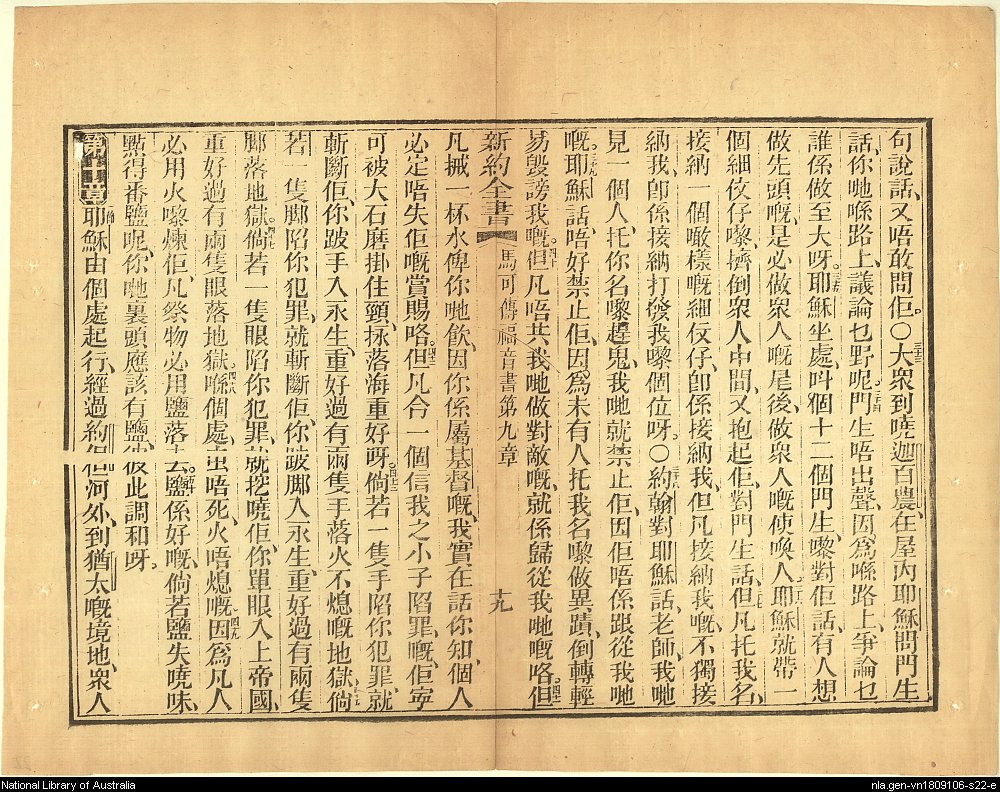 句說話、又唔敢問佢。〇大衆到曉迦百農、在屋內耶穌問門生
話、你哋喺路上、議論乜野呢。門生唔出聲、因爲喺路上爭論乜
誰係做至大呀。耶穌坐處、呌個十二個門生嚟、對佢話、有人想
做先頭嘅、是必做衆人嘅尾後、做衆人嘅使喚人。耶穌就帶一
個細伩仔嚟、擠倒衆人中間、又抱起佢、對門生話、但凡托我名、
接納一個噉樣嘅細伩仔、卽係接納我、但凡接納我嘅、不獨接
納我、卽係接納打發我嚟個位呀。〇約翰對耶穌話、老師、我哋
見一個人、托你名嚟趕鬼、我哋就禁止佢、因佢唔係跟從我哋
嘅。耶穌話、唔好禁止佢、因爲未有人托我名嚟做異蹟、倒轉輕
易毁謗我嘅。但凡唔共我哋做對敵嘅、就係歸從我哋嘅咯。但
新約全書 馬可傳福音書第九章 十九
凡揻一杯水俾你哋飲、因你係屬基督嘅、我實在話你知、個人
必定唔失佢嘅賞賜咯。但凡令一個信我之小子陷罪嘅、佢寜
可被大石磨掛住頸、揼落海重好呀。倘若一隻手陷你犯罪、就
斬斷佢、你跛手入永生、重好過有兩隻手落火不熄嘅地獄。倘
若一隻脚陷你犯罪、就斬斷佢、你跛脚入永生、重好過有兩隻
脚落地獄。倘若一隻眼陷你犯罪、就挖曉佢、你單眼入上帝國、
重好過有兩隻眼落地獄。喺個處、虫唔死、火唔熄嘅。因爲凡人
必用火嚟煉佢、凡祭物必用鹽落去。鹽係好嘅、倘若鹽失曉味、
點得番鹽呢、你哋裏頭、應該有鹽、彼此調和呀。
第十章 耶穌由個處起行、經過約但河外、到猶太嘅境地、衆人
National Library of Australia
nla.gen-vn1809106-s22-e